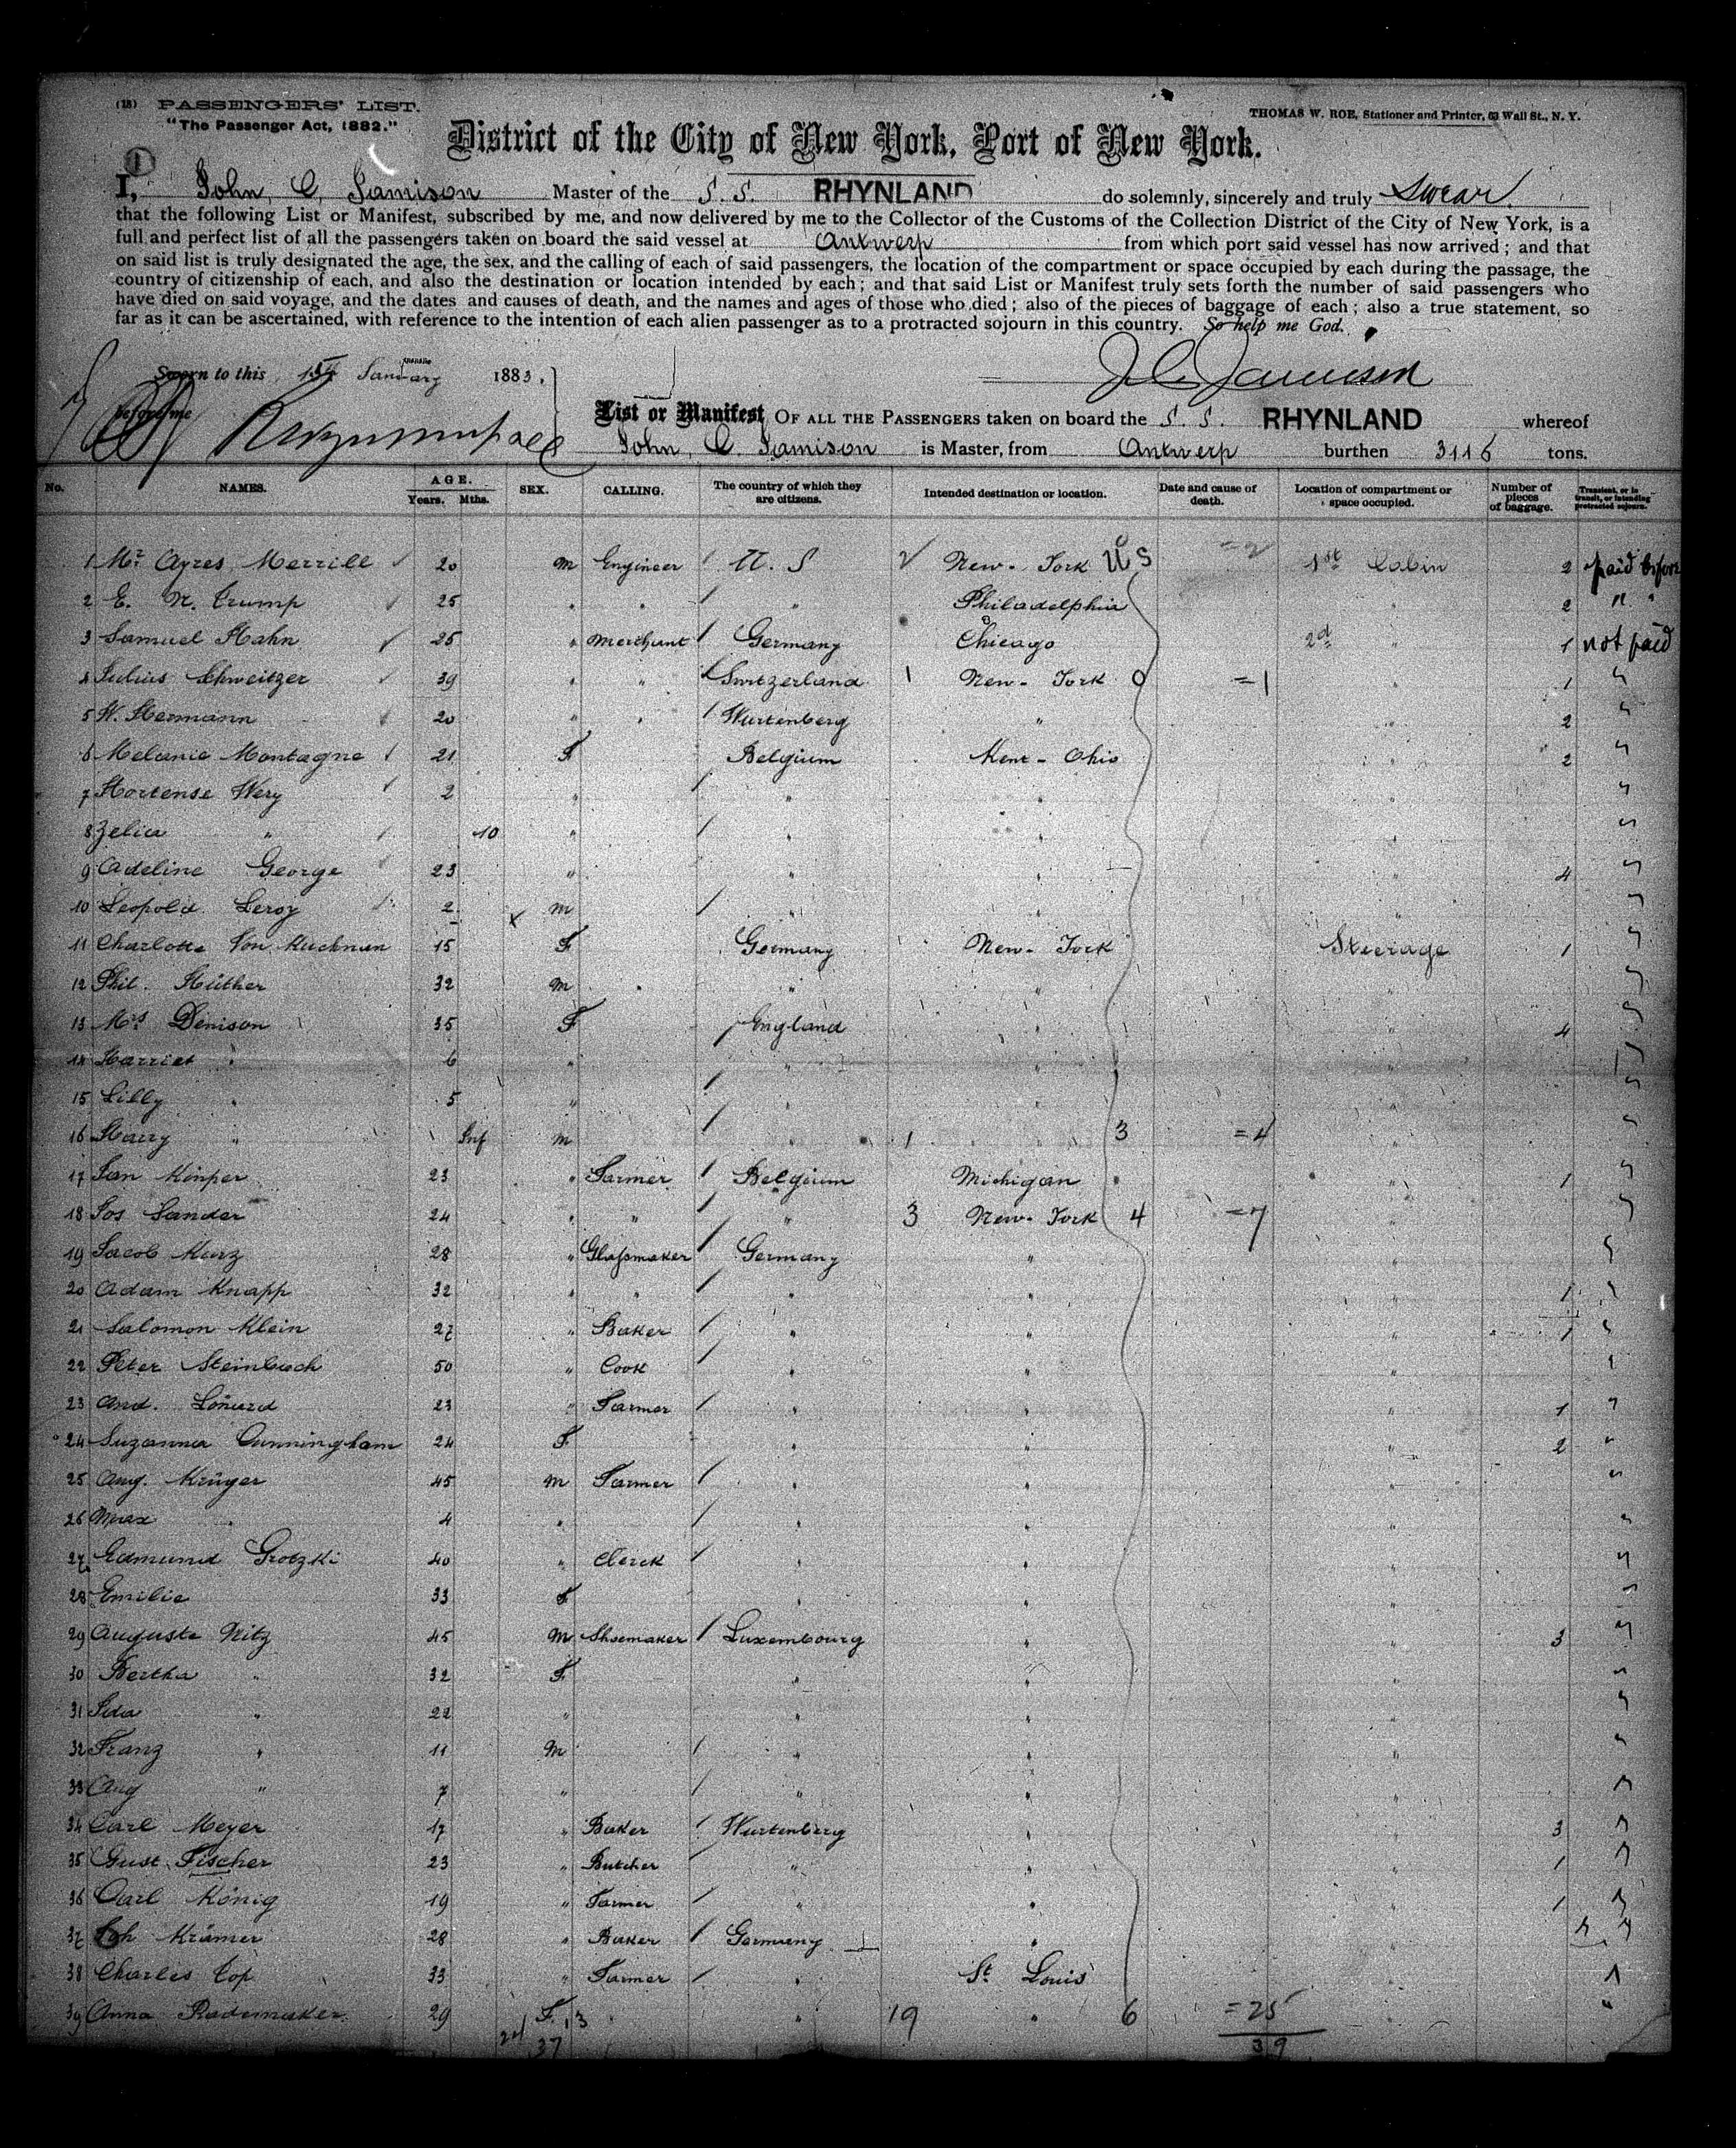 (18) PASSENGERS' LIST.
"The Passenger Act, 1882."
THOMAS W. ROE, Stationer and Printer, 63 Wall St., N. Y.
District of the City of New York, Port of New York.
1
I, John C. Jamison Master of the S. S. RHYNLAND do solemnly, sincerely and truly Swear
that the following List or Manifest, subscribed by me, and now delivered by me to the Collector of the Customs of the Collection District of the City of New York, is a
full and perfect list of all the passengers taken on board the said vessel at Antwerp from which port said vessel has now arrived; and that
on said list is truly designated the age, the sex, and the calling of each of said passengers, the location of the compartment or space occupied by each during the passage, the
country of citizenship of each, and also the destination or location intended by each; and that said List or Manifest truly sets forth the number of said passengers who
have died on said voyage, and the dates and causes of death, and the names and ages of those who died; also of the pieces of baggage of each; also a true statement, so
far as it can be ascertained, with reference to the intention of each alien passenger as to a protracted sojourn in this country. So help me God.
Sworn to this January 1883.
J C Jamison
before me
List or Manifest OF ALL THE PASSENGERS taken on board the S. S. RHYNLAND whereof
John C. Jamison is Master, from Antwerp burthen 3116 tons.
No. NAMES. AGE. Years. Mths. SEX. CALLING. The country of which they are citizens. Intended destination or location. Date and cause of death. Location of compartment or space occupied. Number of pieces of baggage. Transient, or in transit, or intending protracted sojourn.
1 Mr Ayres Merrill 20 m Engineer U. S New-York US 1st Cabin 2 paid before
2 E. N. Trump 25 " " " Philadelphia " 2 " "
3 Samuel Hahn 25 " Merchant Germany Chicago 2d " 1 not paid
4 Julius Schweitzer 39 " " Switzerland 1 New-York 0 =1 " 1 "
5 H. Hermann 20 " " Wurtenberg " " 2 "
6 Melanie Montagne 21 F Belgium Kent-Ohio " 2 "
7 Hortense Wery 2 " " " "
8 Zelia " 10 " " " "
9 Adeline George 23 " " " 4 "
10 Leopold Leroy 2 x m " " "
11 Charlotte Von Kuchman 15 F Germany New-York Steerage 1 "
12 Phil. Hüther 32 m " " " "
13 Mrs Denison 35 F England " " 4 "
14 Harriet " 6 " " " "
15 Lilly " 5 " " " "
16 Harry " Inf m " 1 " 3 =4 " "
17 Jan Kinper 23 " Farmer Belgium Michigan " 1 "
18 Jos Sander 24 " " " 3 New-York 4 =7 " "
19 Jacob Kurz 28 " Glassmaker Germany " " "
20 Adam Knapp 32 " " " " " 1 "
21 Salomon Klein 27 " Baker " " " 1 "
22 Peter Steinbusch 50 " Cook " " " "
23 And. Lönard 23 " Farmer " " " 1 "
24 Suzanna Cunningham 24 F " " " 2 "
25 Aug. Krüger 45 m Farmer " " " "
26 Max " 4 " " " " "
27 Edmund Grotzki 40 " Clerck " " " "
28 Emilie 33 F " " " "
29 Auguste Nitz 45 m Shoemaker Luxembourg " " 3 "
30 Bertha " 32 F " " " "
31 Ida " 22 " " " " "
32 Franz " 11 m " " " "
33 Aug " 7 " " " " "
34 Carl Meyer 17 " Baker Wurtenberg " " 3 "
35 Gust. Fischer 23 " Butcher " " " 1 "
36 Carl König 19 " Farmer " " " 1 "
37 Joh Krämer 28 " Baker Germany " " "
38 Charles Top 33 " Farmer " St Louis " "
39 Anna Rademaker 29 F " 19 " 6 =25 "
24 13
37 39